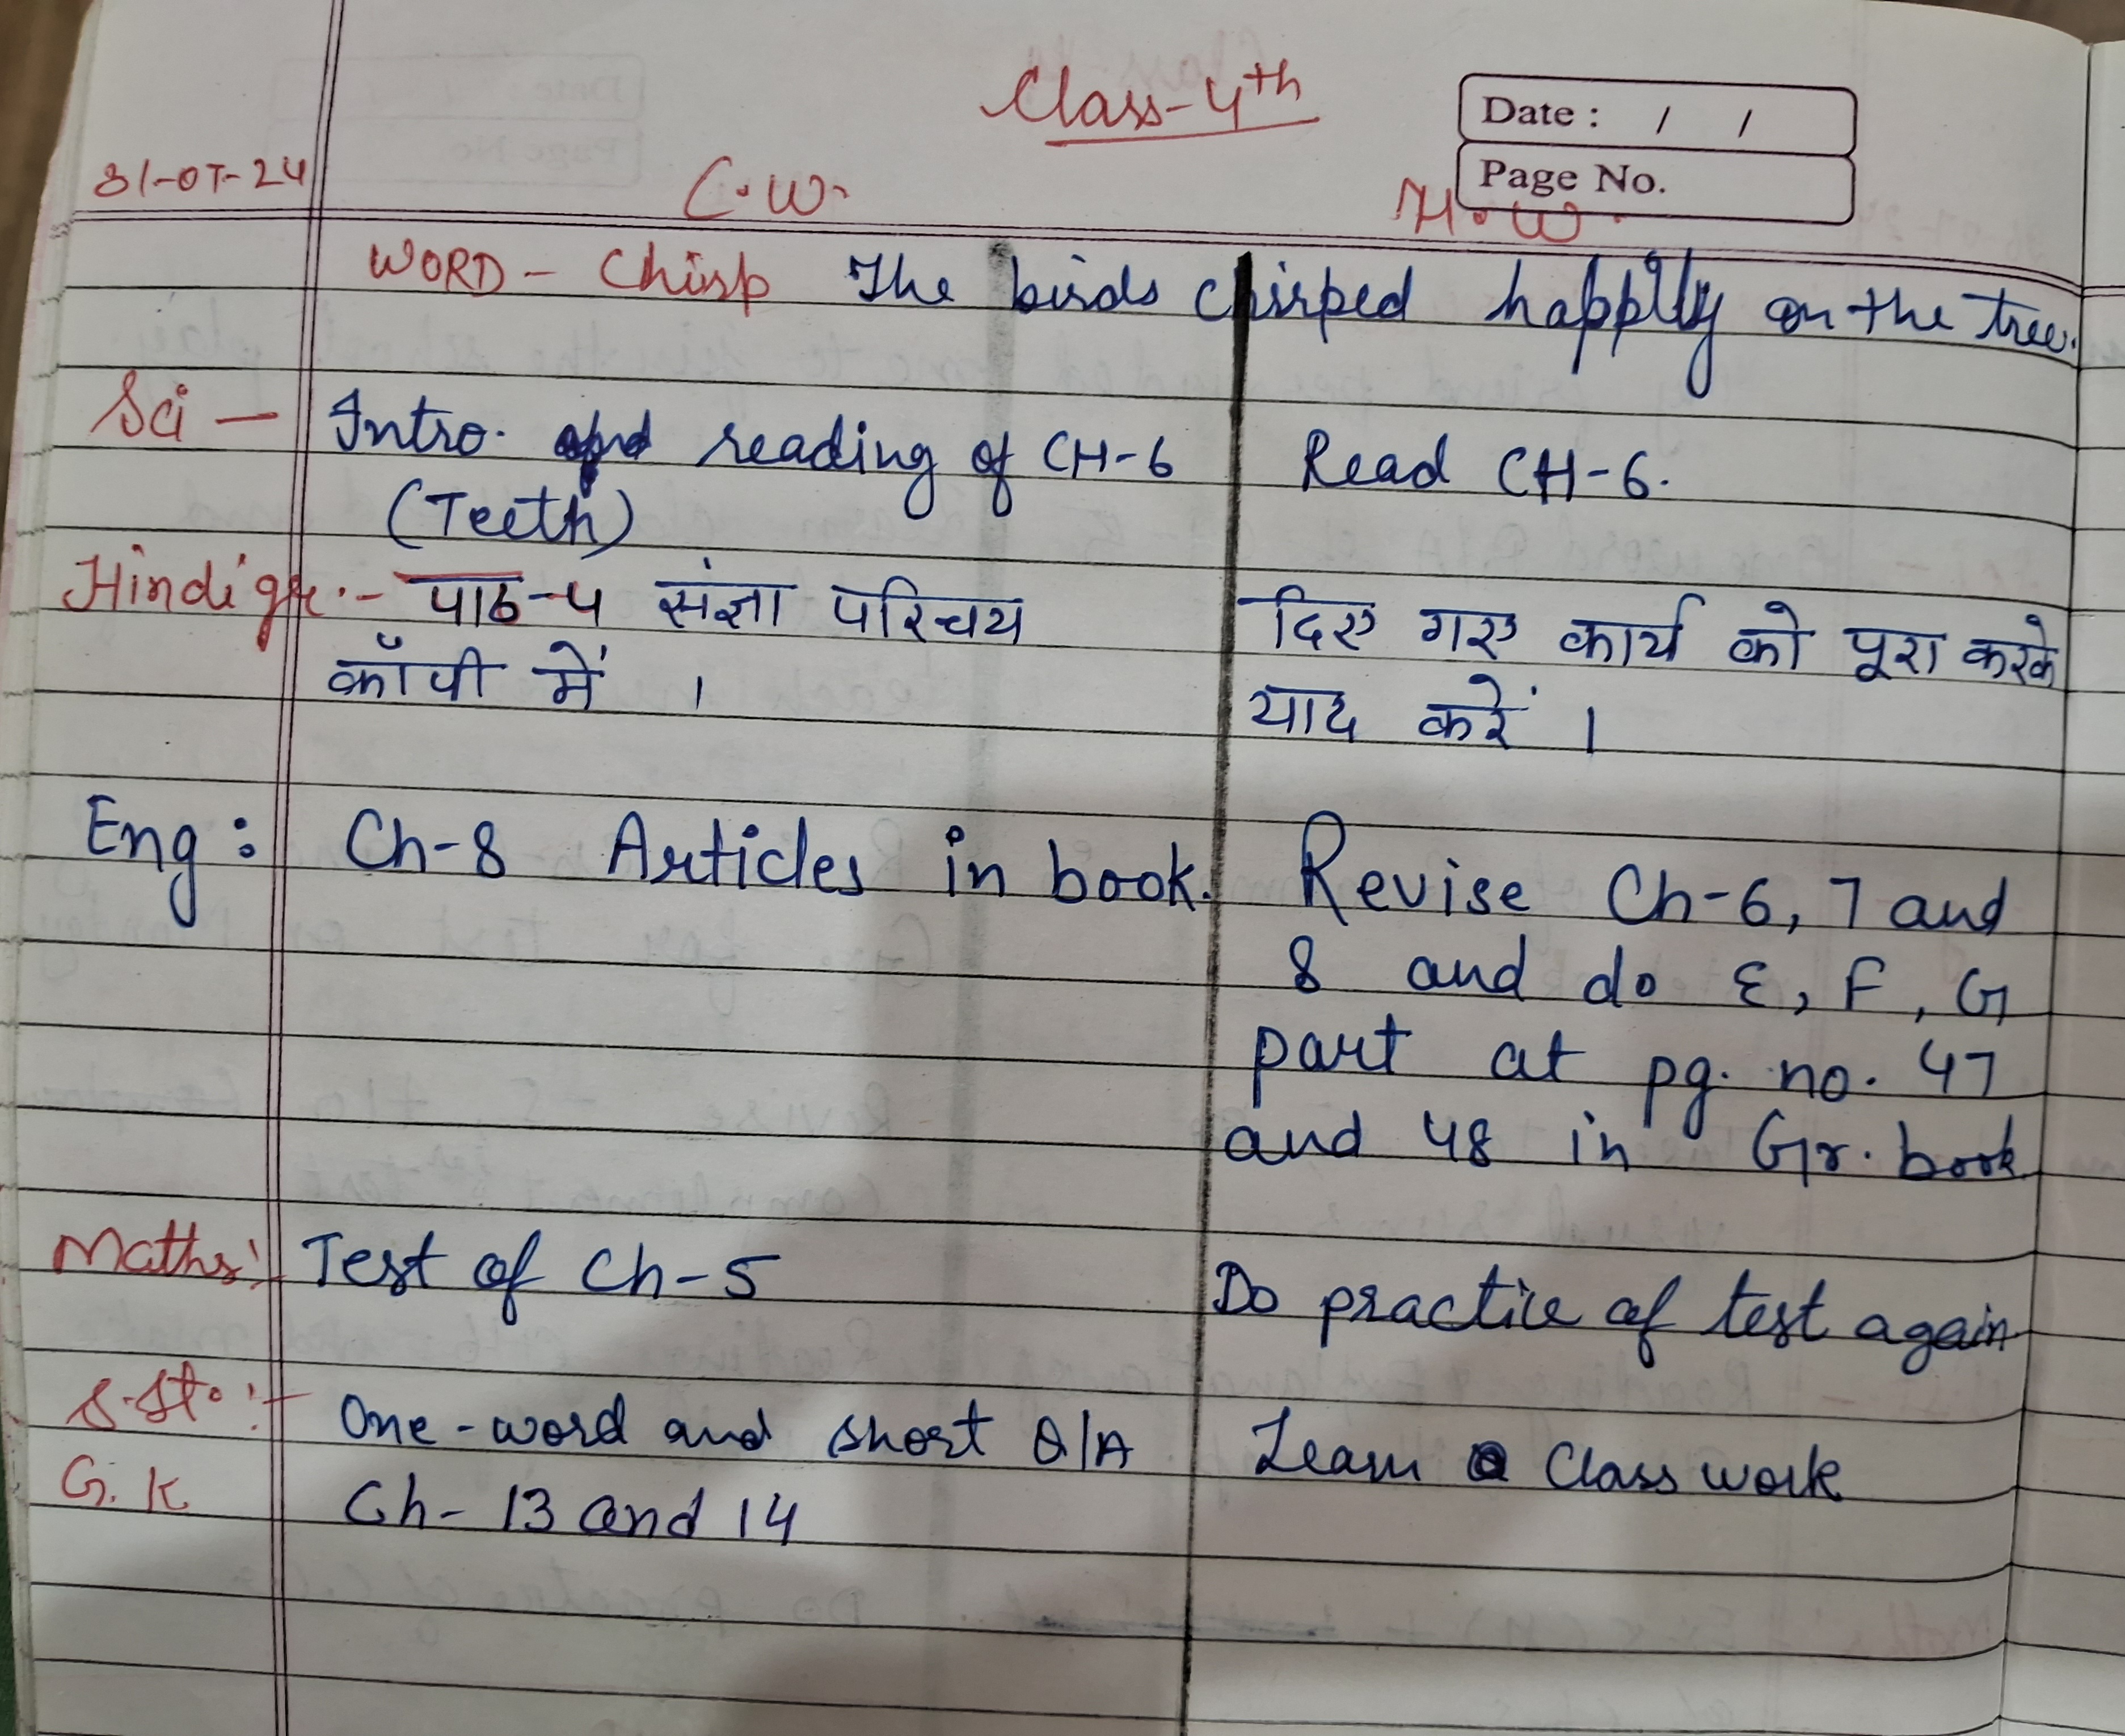 Class-4th
Date : / /
Page No.
31-07-24 C.W. H.W.
WORD - Chirp The birds chirped happily on the tree.
Sci - Intro. and reading of CH-6 Read CH-6.
(Teeth)
Hindi gr. :- पाठ-५ संज्ञा परिचय दिए गए कार्य को पूरा करके
कॉपी में । याद करें ।
Eng : Ch-8 Articles in book. Revise Ch-6, 7 and
8 and do E, F, G
part at pg. no. 47
and 48 in Gr. book
Maths :- Test of Ch-5 Do practice of test again
S.St. :- One-word and short Q/A Learn Class work
G.K Ch- 13 and 14